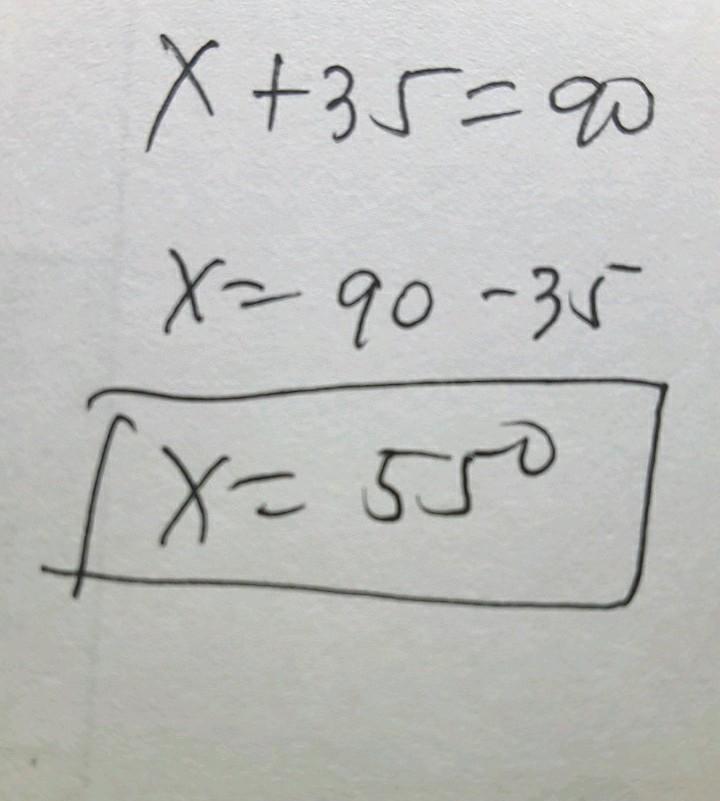 x + 35 = 90
x = 90 - 35
x = 55°